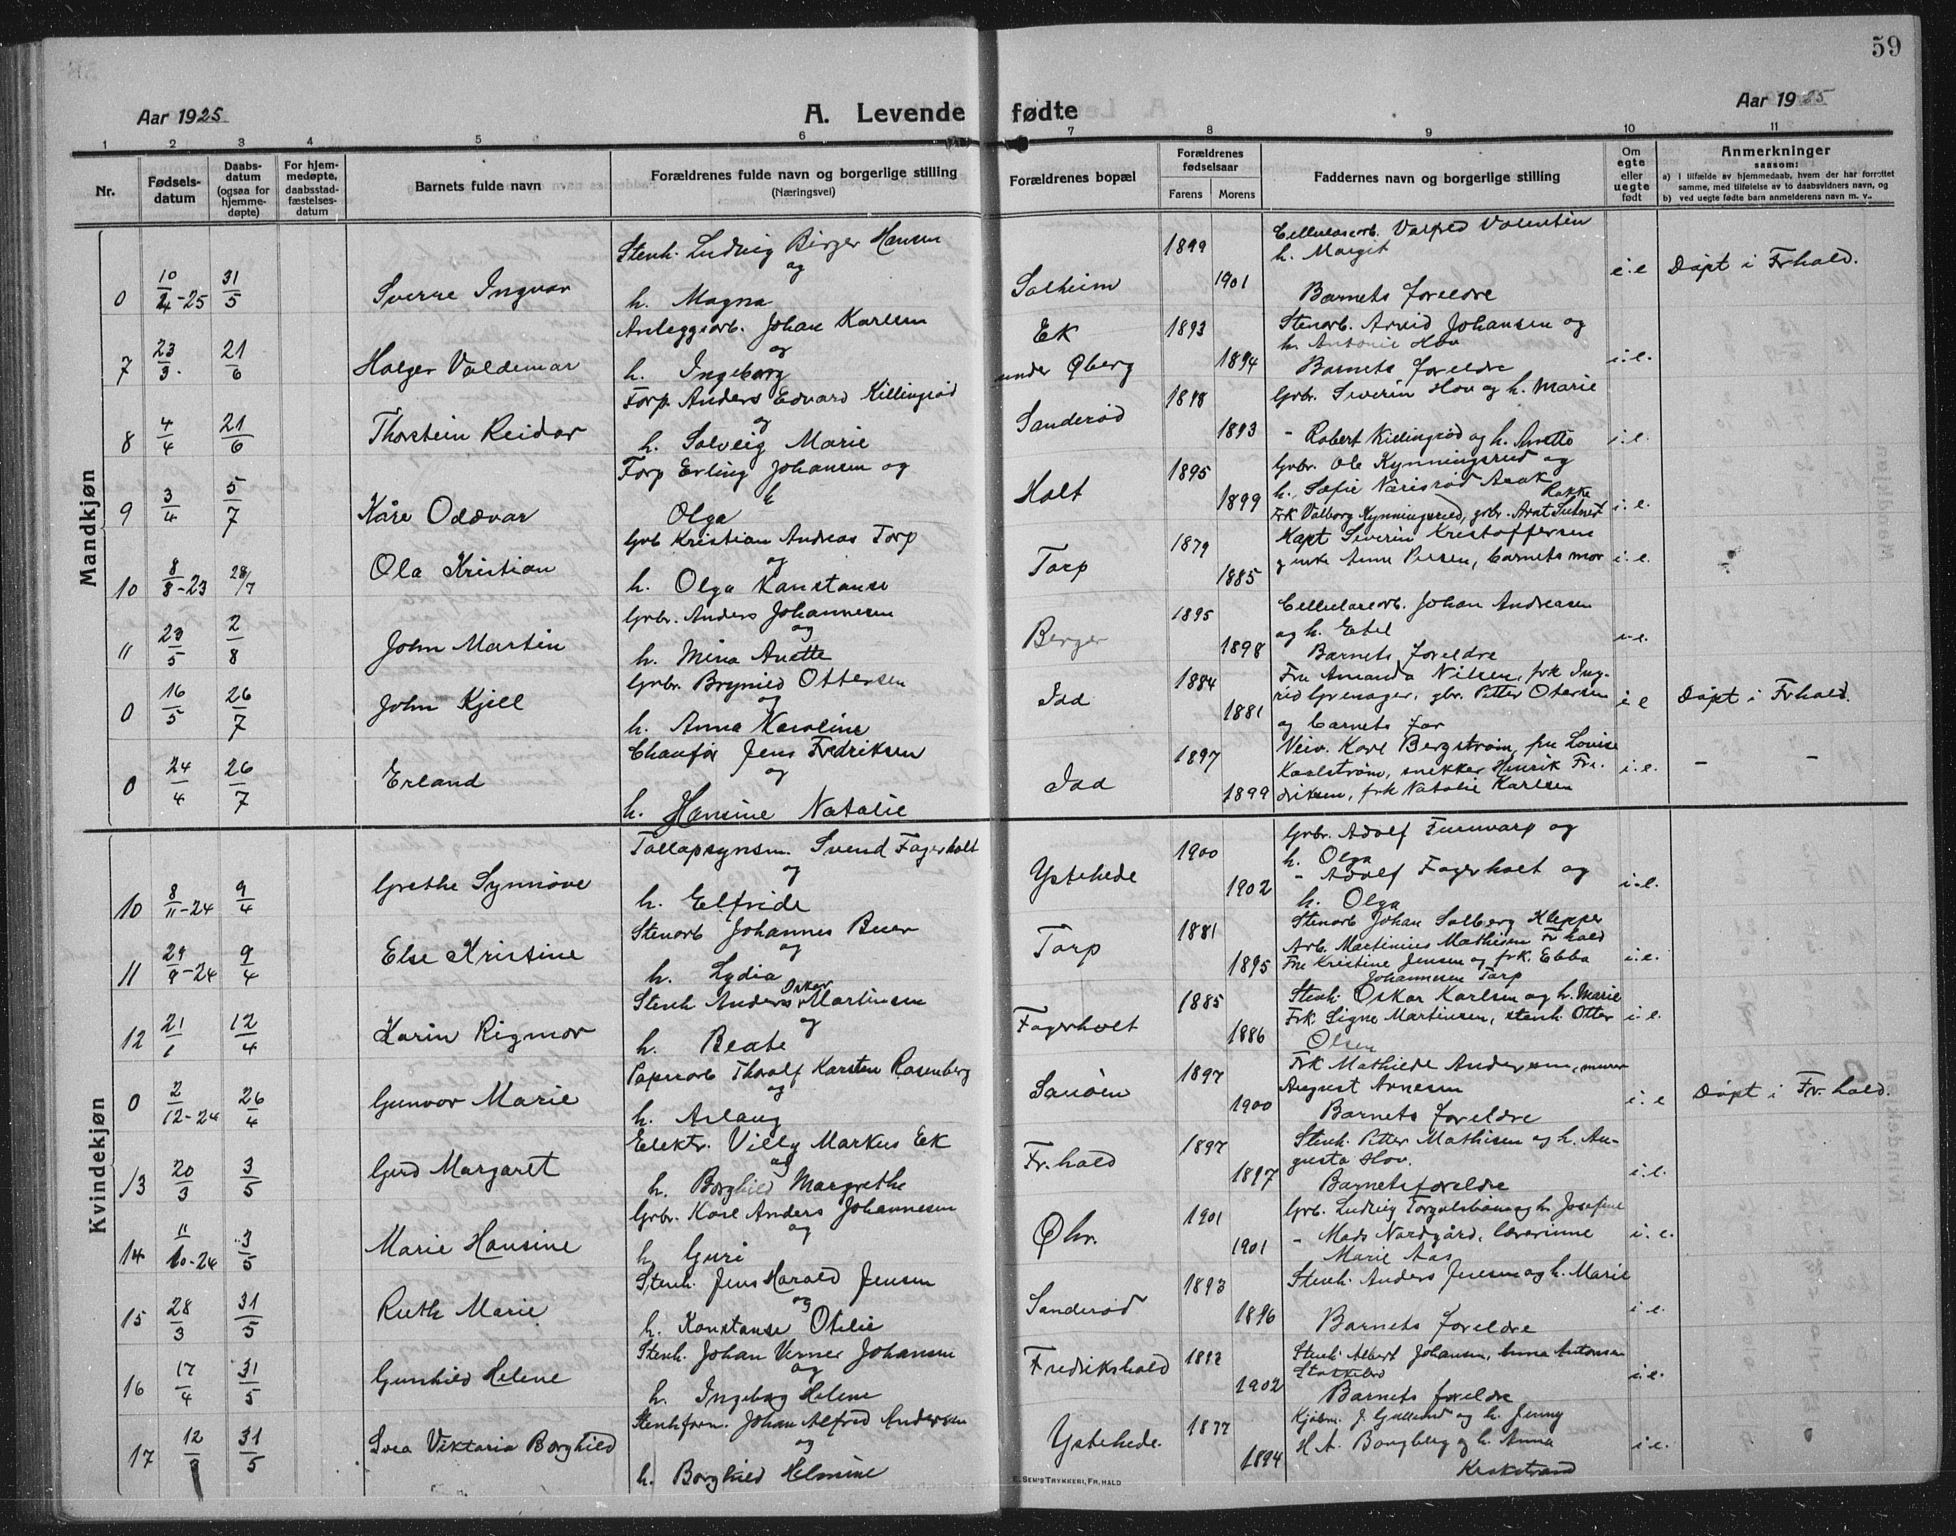 59
Aar 1925
A. Levende fødte
Aar 1925
1 2 3 4 5 6 7 8 9 10 11
Nr.
Fødsels-
datum
Daabs-
datum
(ogsaa for
hjemme-
døpte)
For hjem-
medøpte,
daabsstad-
fæstelses-
datum
Barnets fulde navn
Forældrenes fulde navn og borgerlige stilling
(Næringsvei)
Forældrenes bopæl
Forældrenes
fødselsaar
Farens Morens
Faddernes navn og borgerlige stilling
Om
egte
eller
uegte
født
Anmerkninger
saasom:
a) I tilfælde av hjemmedaab, hvem der har forrettet
samme, med tilføielse av to daabsvidners navn, og
b) ved uegte født barn anmelderens navn m. v..
Mandkjøn
0 10/4-25 31/5 Sverre Ingvar
Stenh. Ludvig Birger Hansen
og
h. Magna
Solheim 1899 1901
Cellulosearb. Valfred Valentin
h. Margit
Barnets foreldre
i.e Døpt i Frhald.
7 23/3 21/6 Holger Valdemar
Anleggsarb. Johan Karlsen
og
h. Ingeborg
Ek
under Øberg 1893 1894
Stenarb. Arvid Johansen og
h. Antonie Hov
Barnets foreldre
i.e.
8 4/4 21/6 Thorstein Reidar
Torp. Anders Edvard Killingrød
og
h. Solveig Marie
Sanderød 1898 1893
Grbr. Severin Hov og h. Marie
- Robert Killingrød og h. Anette
i.e.
9 3/4 5/7 Kåre Oddvar
Torp Erling Johansen og
h
Olga
Holt 1895 1899
Grbr. Ole Kynningsrud og
h. Sofie Nærisrød Arak
Rokke
Frk Valborg Kynningsrud, grbr.
i.e.
10 8/8-23 28/7 Ola Kristian
Grb Kristian Andreas Torp
og
h. Olga Konstanse
Torp 1879 1885
Kapt Severin Kristoffersen
enke Anne Persen, barnets mor
i.e.
11 23/5 2/8 John Martin
Grbr. Anders Johannesen
og
h. Mina Anette
Berger 1895 1898
Cellulosearb. Johan Andreasen
og h. Etel
Barnets foreldre
i.e.
0 16/5 26/7 John Kjell
Grbr. Brynild Ottersen
og
h. Anna Karoline
Idd 1884 1881
Fru Amanda Nilsen, frk Ing-
rid Grenager, gbr. Petter Otersen
og barnets far
i e Døpt i Frhald.
0 24/4 26/7 Erland
Chaufør Jens Fredriksen
og
h. Hansine Natalie
Idd 1897 1899
Veiv. Karl Bergstrøm, fru Lovise
Karlstrøm, snekker Henrik Fre-
driksen, frk Natalie Karlsen
i.e. - -
Kvindekjøn
10 8/11-24 9/4 Grethe Synnøve
Tollopsynsm. Svend Fagerholt
og
h. Elfride
Ystehede 1900 1902
Grbr. Adolf Furuvarp og
h. Olga
- Adolf Fagerholt og
h. Olga
i.e.
11 29/9-24 9/4 Else Kristine
Stenarb Johannes Buer
og
h. Lydia
Torp 1881 1895
Stenarb Johan Solberg Klepper
Arb. Martinius Mathisen Frhald
Fru Kristine Jensen og frk. Ebba
Johannesen Torp
i.e.
12 21/1 12/4 Karin Rigmor
Stenh Anders Oskar Martinsen
og
h. Beate
Fagerholt 1885 1886
Stenh. Oskar Karlsen og h. Marie
Frk. Signe Martinsen, stenh. Otter
Olsen
i.e.
0 2/12-24 26/4 Gunvor Marie
Papirarb Thoralf Karsten Rosenberg
og
h. Aslaug
Sanøen 1897 1900
Frk Mathilde Andersen, murer
August Arnesen
Barnets foreldre
i.e Døpt i Fr.hald.
13 20/3 3/5 Gerd Margaret
Elektr. Villy Markus Ek
og
h. Borghild Margrethe
Fr.hald 1897 1897
Stenh. Petter Mathisen og h. Au-
gusta Hov.
Barnets foreldre
i.e.
14 11/10-24 3/5 Marie Hansine
Grbr. Karl Anders Johannesen
og
h. Guri
Øhr. 1901 1901
Grb. Ludvig og h. Josefine
- Mads Nordgård, lærerinne
Marie Aas
i.e.
15 28/3 31/5 Ruth Marie
Stenh. Jens Harald Jensen
og
h. Konstanse Otilie
Sanderød 1893 1896
Stenh. Anders Jensen og h. Marie
Barnets foreldre
i.e.
16 17/4 31/5 Gunhild Helene
Stenh. Johan Verner Johansen
og
h. Ingeborg Helene
Fredrikshald 1892 1902
Stenh Albert Johansen, Anna Antonsen
Barnets foreldre
i.e.
17 12/3 31/5 Svea Viktoria Borghild
Stenhforn. Johan Alfred Andersen
og
h. Borghild Helmine
Ystehede. 1877 1894
Kjøbm. J. Gullund og h. Jenny
H.A. Bongberg og h. Anna
Krokstrand
i.e.
E. SEM'S TRYKKERI, FR.HALD